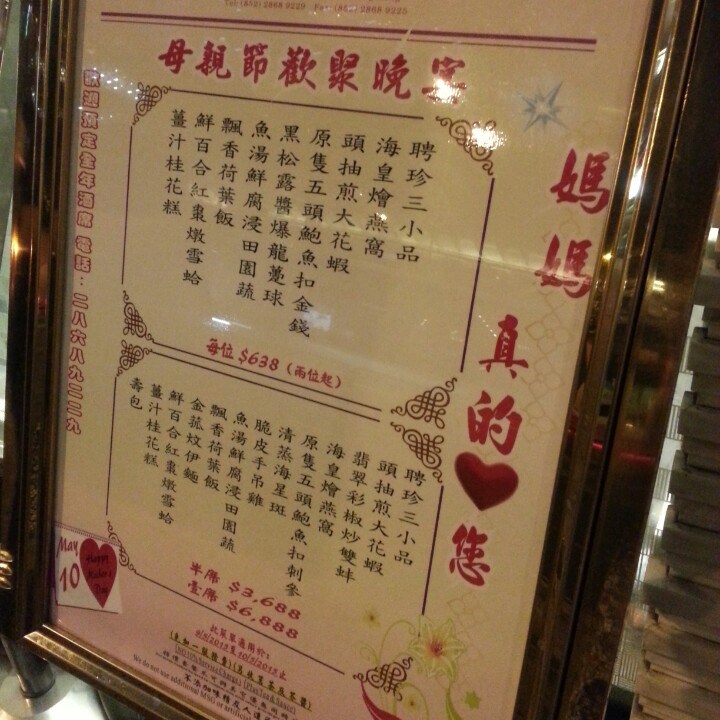 Tel:(852) 2868 9229 Fax:(852) 2868 9225
母親節歡聚晚宴
媽媽真的您
歡迎預定全年酒席 電話：二八六八九二二九
聘珍三小品
海皇燴燕窩
頭抽煎大花蝦
原隻五頭鮑魚扣金錢
黑松露醬爆龍躉球
魚湯鮮腐浸田園蔬
飄香荷葉飯
鮮百合紅棗燉雪蛤
薑汁桂花糕
每位 $638 (兩位起)
聘珍三小品
頭抽煎大花蝦
翡翠彩椒炒雙蚌
海皇燴燕窩
原隻五頭鮑魚扣刺參
清蒸海星斑
脆皮手吊雞
魚湯鮮腐浸田園蔬
飄香荷葉飯
金菰炆伊麵
鮮百合紅棗燉雪蛤
薑汁桂花糕
壽包
半席 $3,688
壹席 $6,888
May
10
Happy
Mother's
Day
此菜單適用於:
(另加一服務費)
We do not use additional MSG or artificial